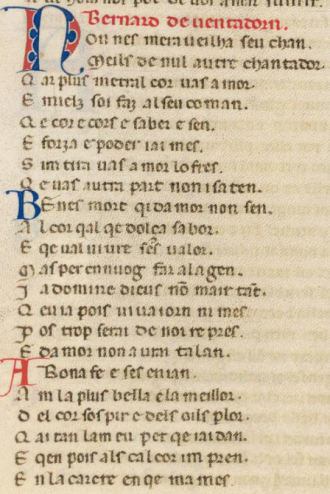 Bernard de uentadorn.
Non nes meraueilha seu chan.
Meils de nul autre chantador.
Qar plus metral cor uas amor.
E mielz soi faz al seu coman.
Qe cor e cors e saber e sen.
E forza e poder iai mes.
Sim tira uas amor lo fres.
Qe uas autra part non i saten.
Ben es mort qi damor non sen.
Al cor qal qe dolza sabor.
E qe ual uiure ses ualor.
Mas per ennuog far ala gen.
Ja domine dieus nō mair tāt.
Qeu ia pois uiua iorn ni mes.
Pos trop serai de noi repres.
E damor non aurai talan.
A Bona fe e ses enian.
Am la plus bella e la meillor.
Del cor sospir e dels oils plor.
Qai tan lam eu per qe iai dan.
E qen pois als cal cor im pren.
E n la carcre en qe ma mes.